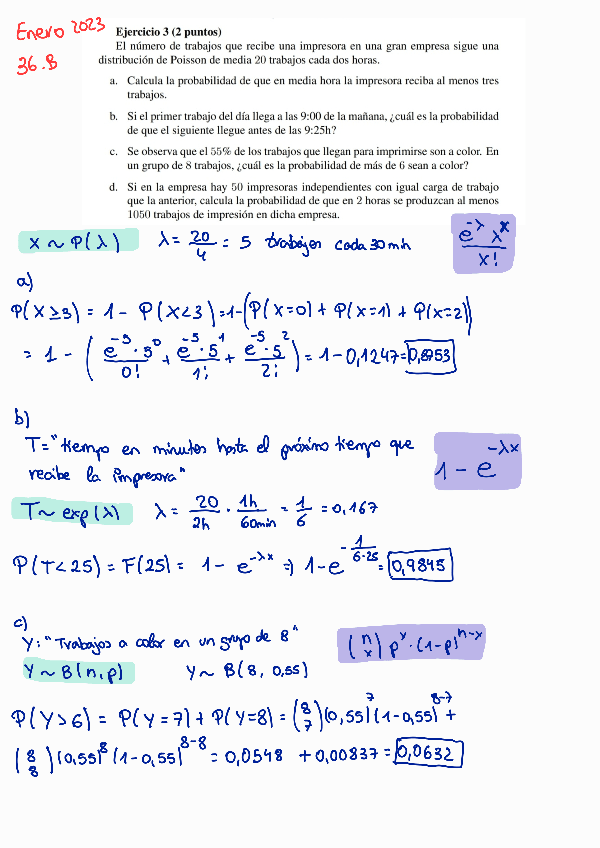 Enero 2023
36.B
Ejercicio 3 (2 puntos)
El número de trabajos que recibe una impresora en una gran empresa sigue una
distribución de Poisson de media 20 trabajos cada dos horas.
a. Calcula la probabilidad de que en media hora la impresora reciba al menos tres
trabajos.
b. Si el primer trabajo del día llega a las 9:00 de la mañana, ¿cuál es la probabilidad
de que el siguiente llegue antes de las 9:25h?
c. Se observa que el 55% de los trabajos que llegan para imprimirse son a color. En
un grupo de 8 trabajos, ¿cuál es la probabilidad de más de 6 sean a color?
d. Si en la empresa hay 50 impresoras independientes con igual carga de trabajo
que la anterior, calcula la probabilidad de que en 2 horas se produzcan al menos
1050 trabajos de impresión en dicha empresa.
X ~ P(λ) λ = 20/4 = 5 trabajos cada 30 min e^-λ λ^x / x!
a)
P(X≥3) = 1 - P(X<3) = 1-(P(X=0) + P(X=1) + P(X=2))
= 1 - (e^-5·5^0/0! + e^-5·5^1/1! + e^-5·5^2/2!) = 1-0,1247=0,8753
b)
T="tiempo en minutos hasta el próximo tiempo que
recibe la impresora" 1 - e^-λx
T~ exp(λ) λ = 20/2h · 1h/60min = 1/6 = 0,167
P(T<25) = F(25) = 1 - e^-λx => 1-e^-1/6·25 = 0,9845
c)
Y: "Trabajos a color en un grupo de 8" (n x) p^x · (1-p)^n-x
Y ~ B(n,p) Y ~ B(8, 0,55)
P(Y>6) = P(Y=7) + P(Y=8) = (8 7)(0,55)^7 (1-0,55)^8-7 +
(8 8)(0,55)^8 (1-0,55)^8-8 = 0,0548 + 0,00837 = 0,0632